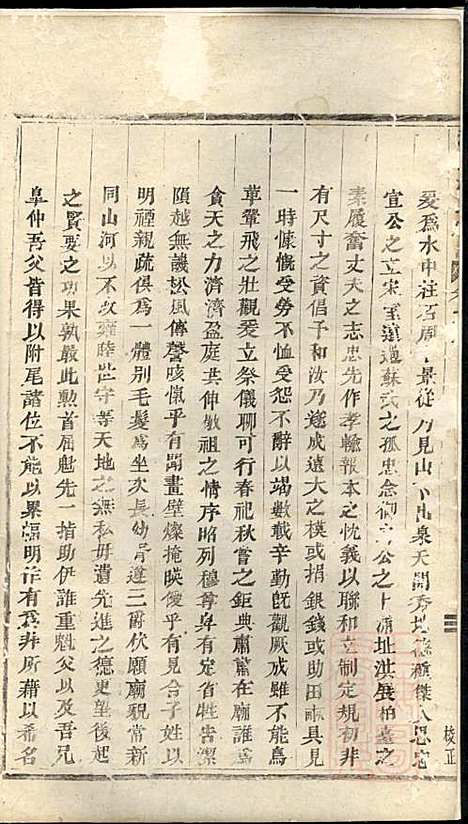 爰為水中柱石周 景從乃見山下出泉天開秀地 種傑人思它
宣公之立宋室遠過蘇武之孤忠念御六公之卜 址洪展柏臺之
素履奮丈夫之志忠先作孝輸報本之忱義以聯和立制定規初非
有尺寸之資倡予和汝乃遂成遠大之模或捐銀錢或助田畝具見
一時慷慨受勞不恤受怨不辭以竭數載辛勤旣觀厥成雖不能鳥
革翬飛之壯觀爰立祭儀聊可行春祀秋嘗之鉅典肅肅在廟誰為
貪天之力濟濟盈庭共伸敬祖之情序昭列穆尊卑有定省牲告潔
隕越無譏松風傳謦咳愾乎有聞畫壁燦掩暎僾乎有見合子姓以
明禋親疏俱為一體別毛髮為坐次長幼肩遵三爵伏願廟貌常新
同山河以不改雍睦世守等天地之無私毋遺先進之德更望後起
之賢要之功果孰嚴此勲首屈魁先一措助伊誰重魁父以及吾兄
阜仲吾父皆得以附尾諸位不能以畢福明諱有為非所藉以希名
校正